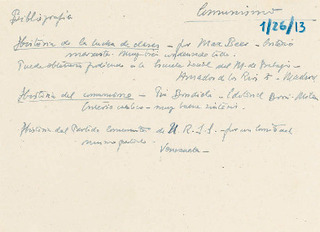 Bibliografia
Comunismo
1/26/13
Historia de la lucha de clases - por Max Beer - Criterio
marxista. Muy bien
Puede obtenerse pidiendo a la Escuela Social del M. de Trabajo -
Amador de los Rios 5 - Madrid
Historia del comunismo - - Editorial
Criterio católico - muy buena síntesis.
Historia del Partido Comunista de U.R.S.S. - por un Comité del
mismo partido. - Venezuela -